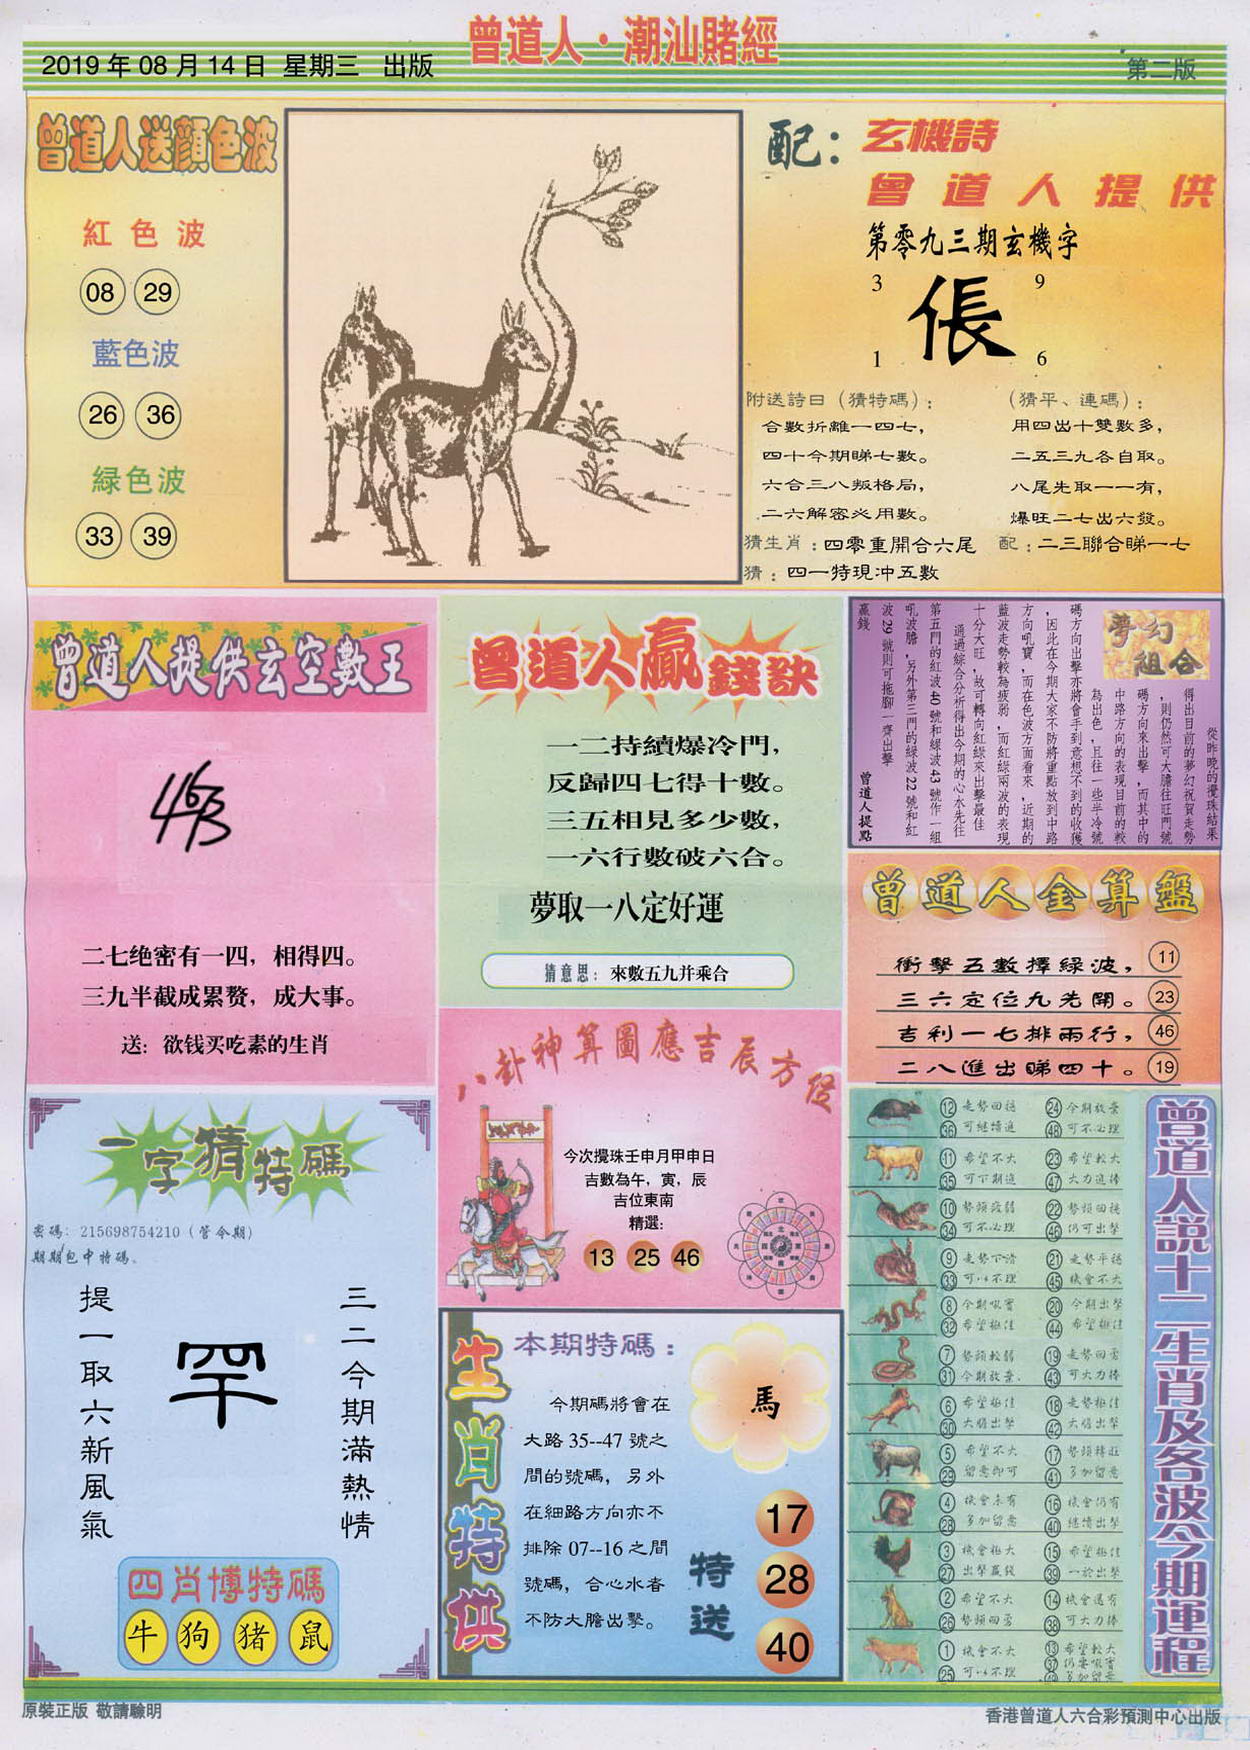 曾道人·潮汕賭經
2019年08月14日 星期三 出版
第二版
曾道人送顏色波
紅色波
08 29
藍色波
26 36
緑色波
33 39
配：玄機詩
曾道人提供
第零九三期玄機字
3 9
倀
1 6
附送詩曰（猜特碼）：
合數折離一四七，
四十今期睇七數。
六合三八叛格局，
二六解密必用數。
（猜平、連碼）：
用四出十雙數多，
二五三九各自取。
八尾先取一一有，
爆旺二七出六發。
猜生肖：四零重開合六尾 配：二三聯合睇一七
猜：四一特現冲五數
曾道人提供玄空數王
463
二七绝密有一四，相得四。
三九半截成累赘，成大事。
送：欲钱买吃素的生肖
曾道人贏錢訣
一二持續爆冷門，
反歸四七得十數。
三五相見多少數，
一六行數破六合。
夢取一八定好運
猜意思：來數五九并乘合
夢幻組合
從昨晚的攪珠結果
得出目前的夢幻祝賀走勢
，則仍然可大膽往旺門號
碼方向來出擊，而其中的
中路方向的表現目前的較
為出色，且往一些半冷號
碼方向出擊亦將會手到意想不到的收獲
，因此在今期大家不防將重點放到中路
方向吼寶，而在色波方面看來，近期的
藍波走勢較為疲弱，而紅綠兩波的表現
十分大旺，故可轉向紅綠來出擊最佳
通過綜合分析得出今期的心水先往
第五門的紅波40號和綠波43號作一組
吼波膽，另外第三門的綠波22號和紅
波29號則可拖腳一齊出擊
贏錢
曾道人提點
曾道人金算盤
衝擊五數擇緑波， 11
三六定位九先開。 23
吉利一七排兩行， 46
二八進出睇四十。 19
八卦神算圖應吉辰方位
今次攪珠壬申月甲申日
吉數為午，寅，辰
吉位東南
精選：
13 25 46
一字猜特碼
密碼：215698754210（管今期）
期期包中特碼。
提一取六新風氣
罕
三二今期滿熱情
四肖博特碼
牛 狗 猪 鼠
生肖特供
本期特碼：
今期碼將會在
大路35--47號之
間的號碼，另外
在細路方向亦不
排除07--16之間
號碼，合心水者
不防大膽出擊。
馬
特送
17
28
40
曾道人說十二生肖及各波今期運程
12 走勢回穩 24 今期放棄
36 可繼續進 48 可不必理
11 希望不大 23 希望較大
35 可下期進 47 大力進捧
10 勢頭疲弱 22 勢頭回穩
34 可不必理 46 仍可出擊
9 走勢下滑 21 走勢平穩
33 可以不理 45 機會不大
8 今期吼寶 20 今期出擊
32 希望極佳 44 希望極佳
7 勢頭較弱 19 走勢回勇
31 今期放棄. 43 可大力捧
6 希望極佳 18 走勢極佳
30 大膽出擊 42 大膽出擊
5 希望不大 17 勢頭轉旺
29 留意即可 41 多加留意
4 機會未有 16 機會仍有
28 多加留意 40 繼續出擊
3 機會極大 15 希望極佳
27 出擊贏錢 39 一於出擊
2 希望不大 14 機會還有
26 勢頭回勇 38 可大力捧
1 機會不大 13 希望較大
25 可以不理 37 仍要吼寶
49 多加留意
原裝正版 敬請驗明
香港曾道人六合彩預測中心出版